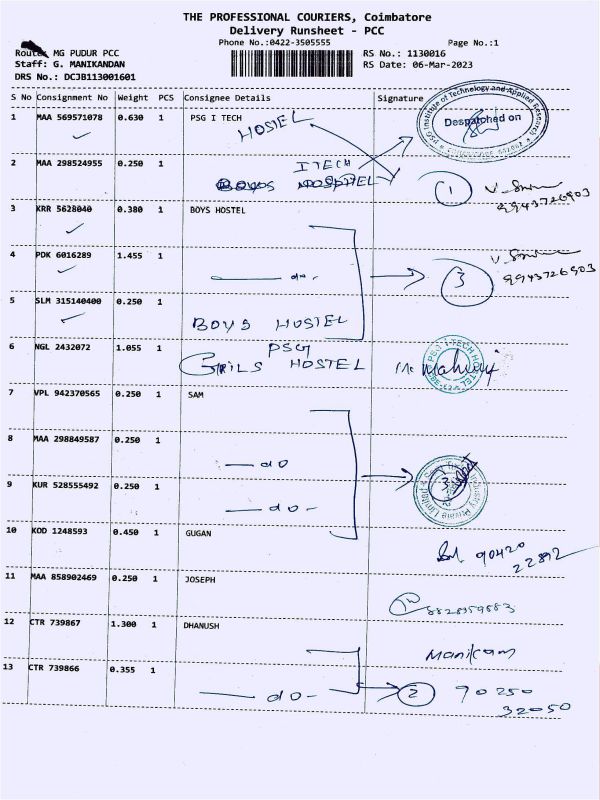 THE PROFESSIONAL COURIERS, Coimbatore
Delivery Runsheet - PCC
Phone No.:0422-3505555 Page No.:1
Route: MG PUDUR PCC RS No.: 1130016
Staff: G. MANIKANDAN RS Date: 06-Mar-2023
DRS No.: DCJB113001601
S No Consignment No Weight PCS Consignee Details Signature
1 MAA 569571078 0.630 1 PSG I TECH
HOSTEL
PSG Institute of Technology and Applied Research
Despatched on
2 MAA 298524955 0.250 1 ITECH
BOYS HOSPITEL 1
9943726903
3 KRR 5628040 0.380 1 BOYS HOSTEL
4 PDK 6016289 1.455 1 do 3
9943726903
5 SLM 315140400 0.250 1 BOYS HOSTEL
6 NGL 2432072 1.055 1 PSG
GIRLS HOSTEL
7 VPL 942370565 0.250 1 SAM
8 MAA 298849587 0.250 1 do
9 KUR 528555492 0.250 1 do 3
10 KOD 1248593 0.450 1 GUGAN
90420
22892
11 MAA 858902469 0.250 1 JOSEPH
12 CTR 739867 1.300 1 DHANUSH
Manikam
13 CTR 739866 0.355 1 do 2 90250
32050